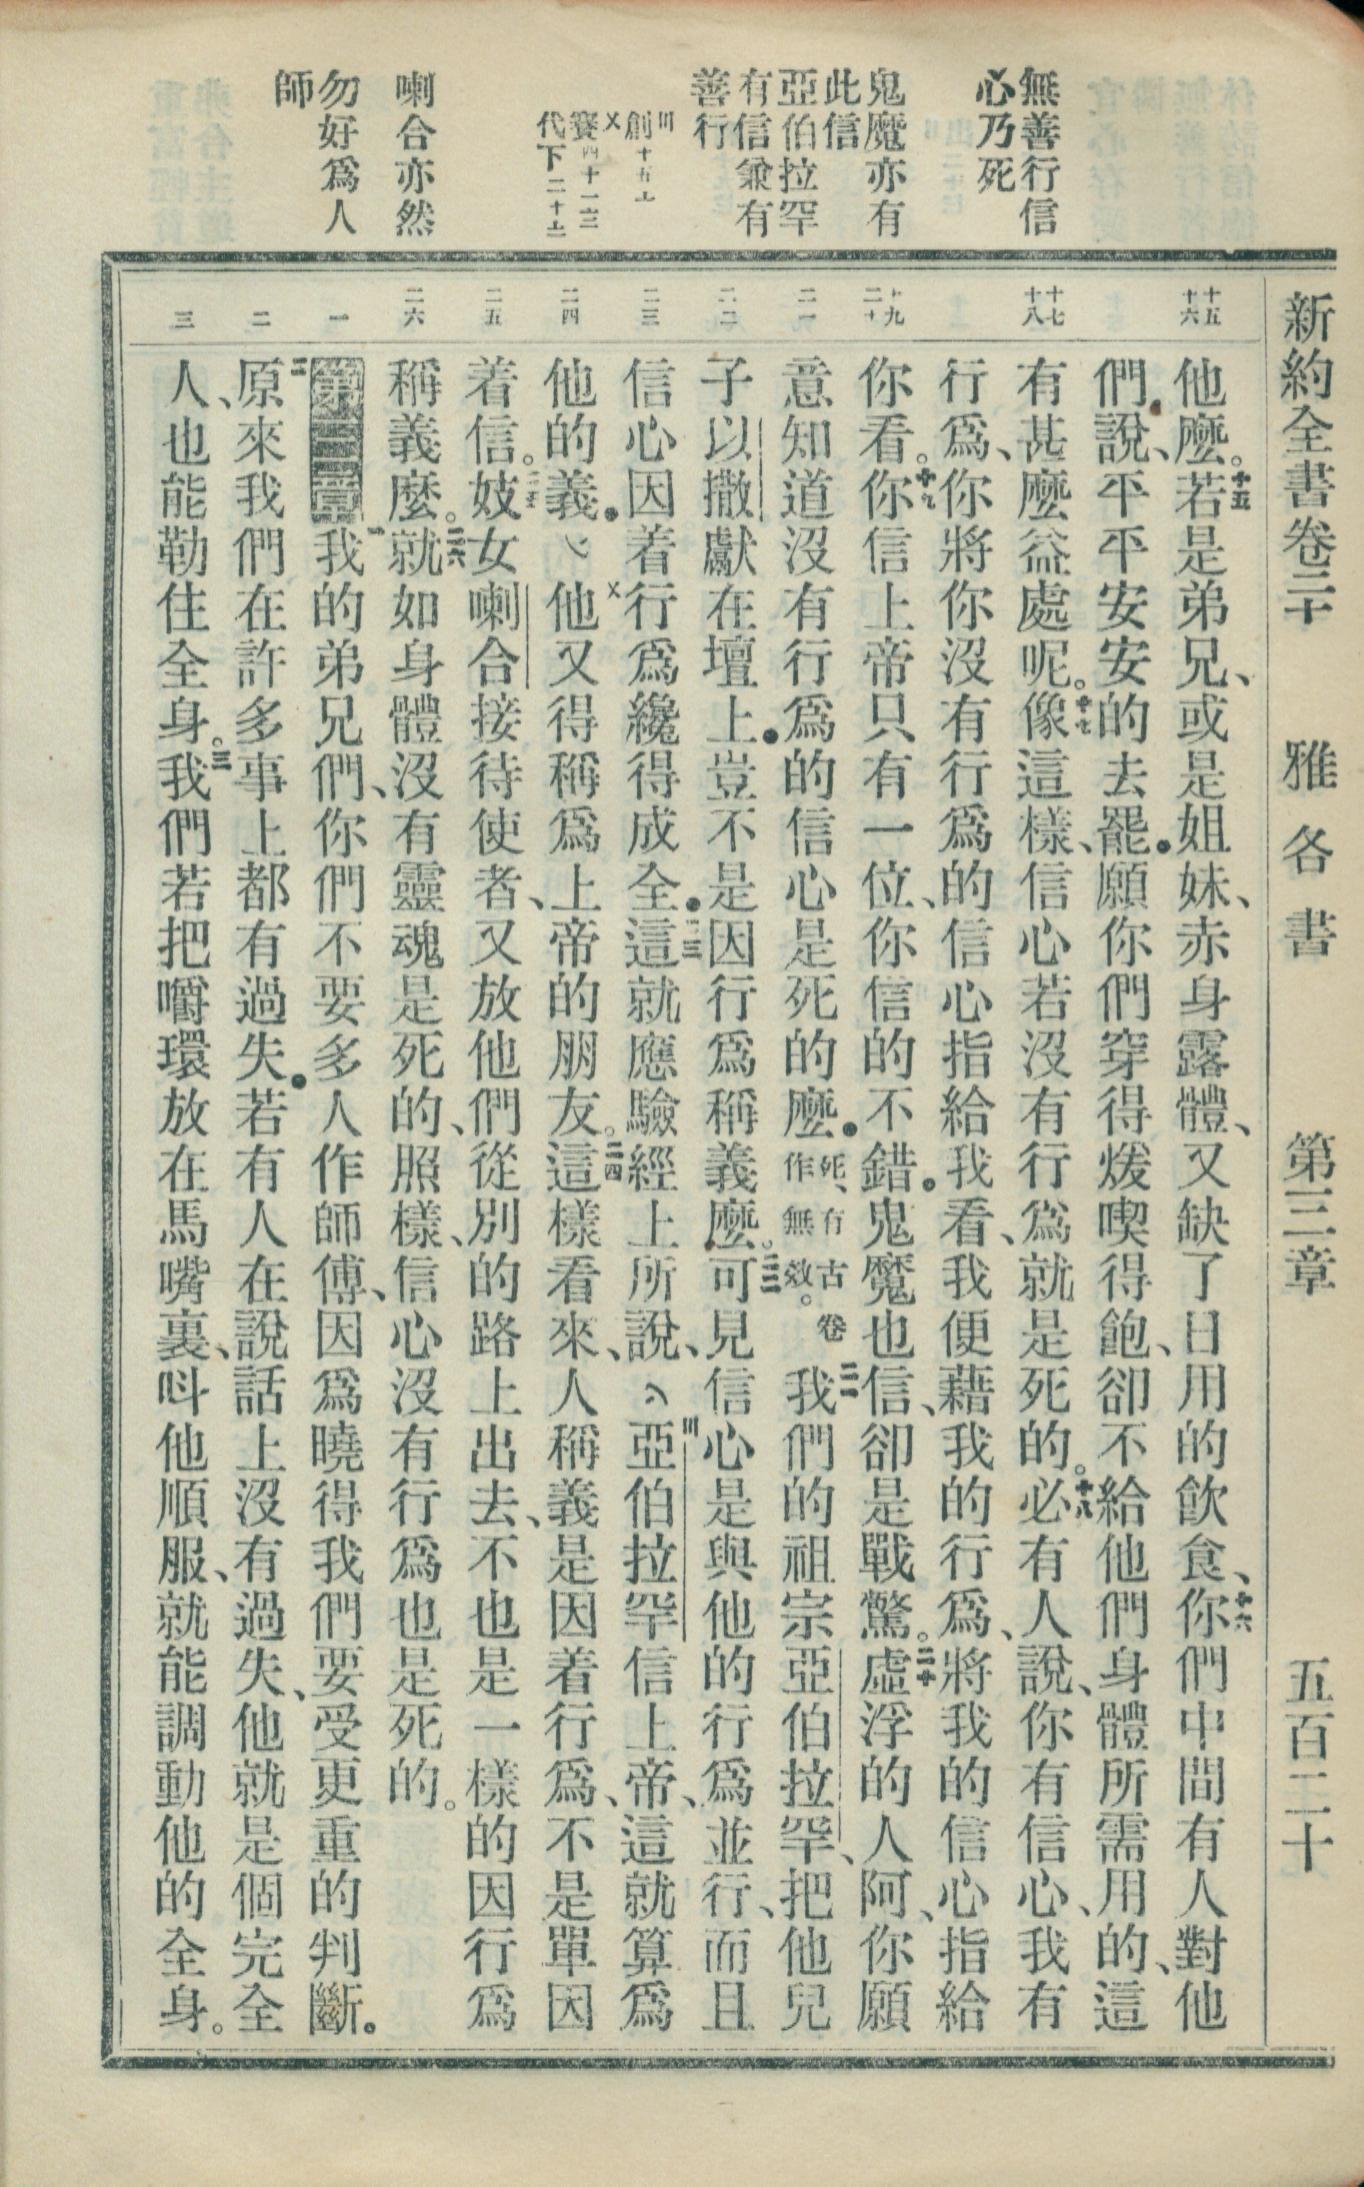 新約全書卷二十 雅各書 第三章 五百二十
無善行信
心乃死
鬼魔亦有
此信
亞伯拉罕
有信兼有
善行
創十五
賽四十一
代下二十
喇合亦然
勿好爲人
師
十五
十六
十七
十八
十九
二十
二一
二二
二三
二四
二五
二六
一
二
三
他麼。十五若是弟兄、或是姐妹、赤身露體、又缺了日用的飲食、十六你們中間有人對他
們說、平平安安的去罷．願你們穿得煖喫得飽、卻不給他們身體所需用的、這
有甚麼益處呢。十七像這樣、信心若沒有行爲就是死的。十八必有人說、你有信心、我有
行爲、你將你沒有行爲的信心指給我看、我便藉我的行爲、將我的信心指給
你看。十九你信上帝只有一位、你信的不錯．鬼魔也信、卻是戰驚。二十虛浮的人阿、你願
意知道沒有行爲的信心是死的麼．死、有古卷作無效。二一我們的祖宗亞伯拉罕、把他兒
子以撒獻在壇上．豈不是因行爲稱義麼。二二可見信心是與他的行爲並行、而且
信心因着行爲纔得成全．二三這就應驗經上所說、亞伯拉罕信上帝、這就算爲
他的義．他又得稱爲上帝的朋友。二四這樣看來、人稱義是因着行爲、不是單因
着信。二五妓女喇合接待使者、又放他們從別的路上出去、不也是一樣的因行爲
稱義麼。二六就如身體沒有靈魂是死的、照樣、信心沒有行爲也是死的。
第三章 一我的弟兄們、你們不要多人作師傅、因爲曉得我們要受更重的判斷。
二原來我們在許多事上都有過失．若有人在說話上沒有過失、他就是個完全
人、也能勒住全身。三我們若把嚼環放在馬嘴裏、呌他順服、就能調動他的全身。